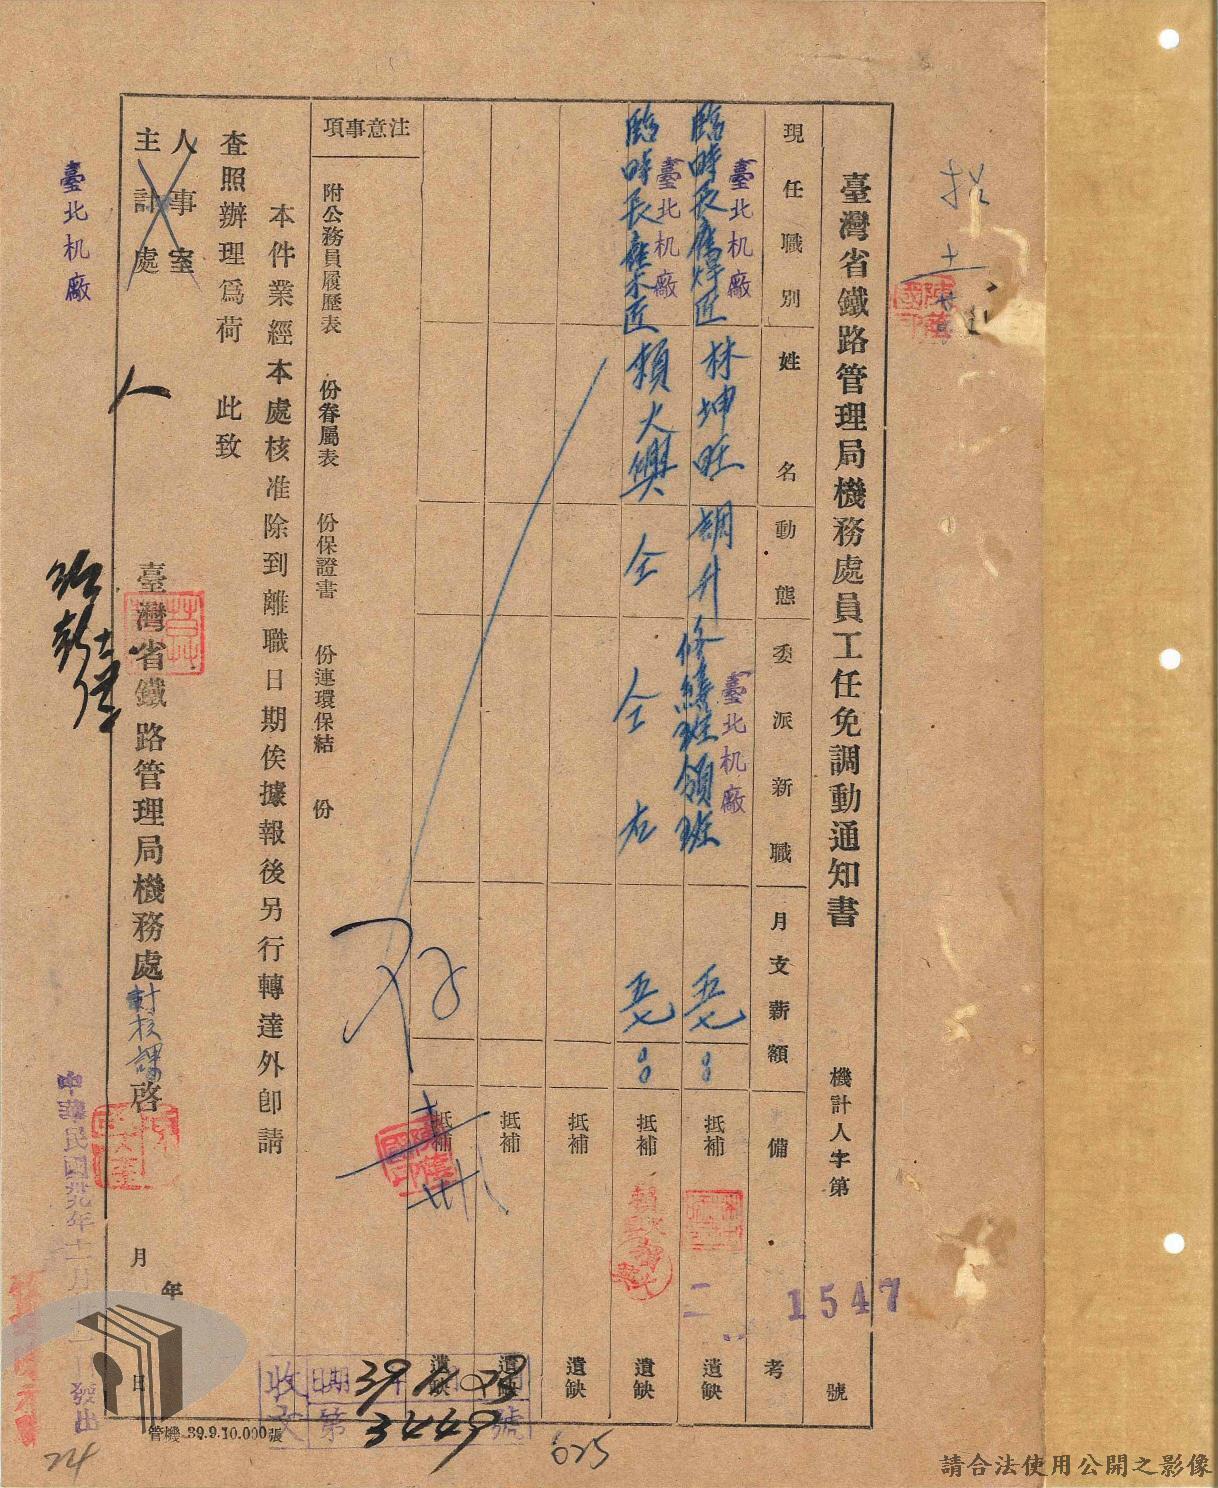 臺灣省鐵路管理局機務處員工任免調動通知書
機計人字第 1547 號
現任職別 姓名 動態 委派新職 月支薪額 備考
臺北机廠 臺北机廠
臨時長雇焊匠 林坤旺 調升 修繕班領班 五七 00 抵補 遺缺
二
臺北机廠
臨時長雇木匠 賴火興 仝 仝右 五七 00 抵補 遺缺
抵補 遺缺
抵補 遺缺
抵補 遺缺
注意事項
附公務員履歷表 份眷屬表 份保證書 份連環保結 份
本件業經本處核准除到離職日期俟據報後另行轉達外卽請
查照辦理爲荷 此致
人事室
主計處
臺北机廠
人
臺灣省鐵路管理局機務處計核課啓
年
月
日
中華民國卅九年十一月 發出
收文
日期 39 11 23
第 3449 號
管機 39.9.10.000張
625
24
請合法使用公開之影像